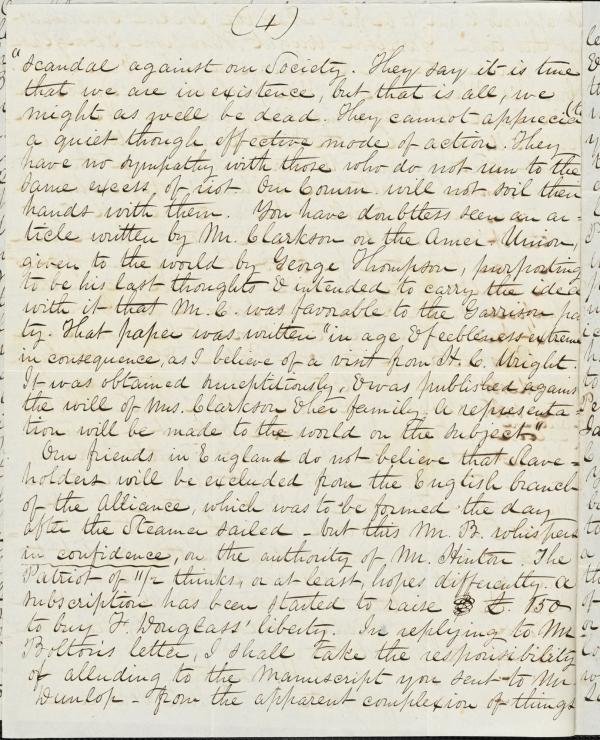 (4)
"scandal against our Society. They say it is true
that we are in existence, but that is all, we
might as well be dead. They cannot appreciate
a quiet though effective mode of action. They
have no sympathy with those who do not run to the
same excess of riot Our Comm. will not soil their
hands with them. You have doubtless seen an ar-
ticle written by Mr. Clarkson on the Amer. Union,
given to the world by George Thompson, purporting
to be his last thoughts & intended to carry the idea
with it that Mr. C. was favorable to the Garrison par
ty. That paper was written "in age & feebleness extreme
in consequence, as I believe of a visit from H. C. Wright.
It was obtained surreptitiously, & was published against
the will of Mrs. Clarkson & her family. A representa-
tion will be made to the world on the subject."
Our friends in England do not believe that Slave-
holders will be excluded from the English branch
of the Alliance, which was to be formed the day
after the Steamer sailed - but this Mr. B. whispers
in confidence, on the authority of Mr. Hinton. The
Patriot of 11/2 thinks, or at least, hopes differently. A
subscription has been started to raise £. 150
to buy F. Douglass' liberty. In replying to Mr
Bolton's letter, I shall take the responsibility
of alluding to the Manuscript you sent to Mr
Dunlop - from the apparent complexion of things